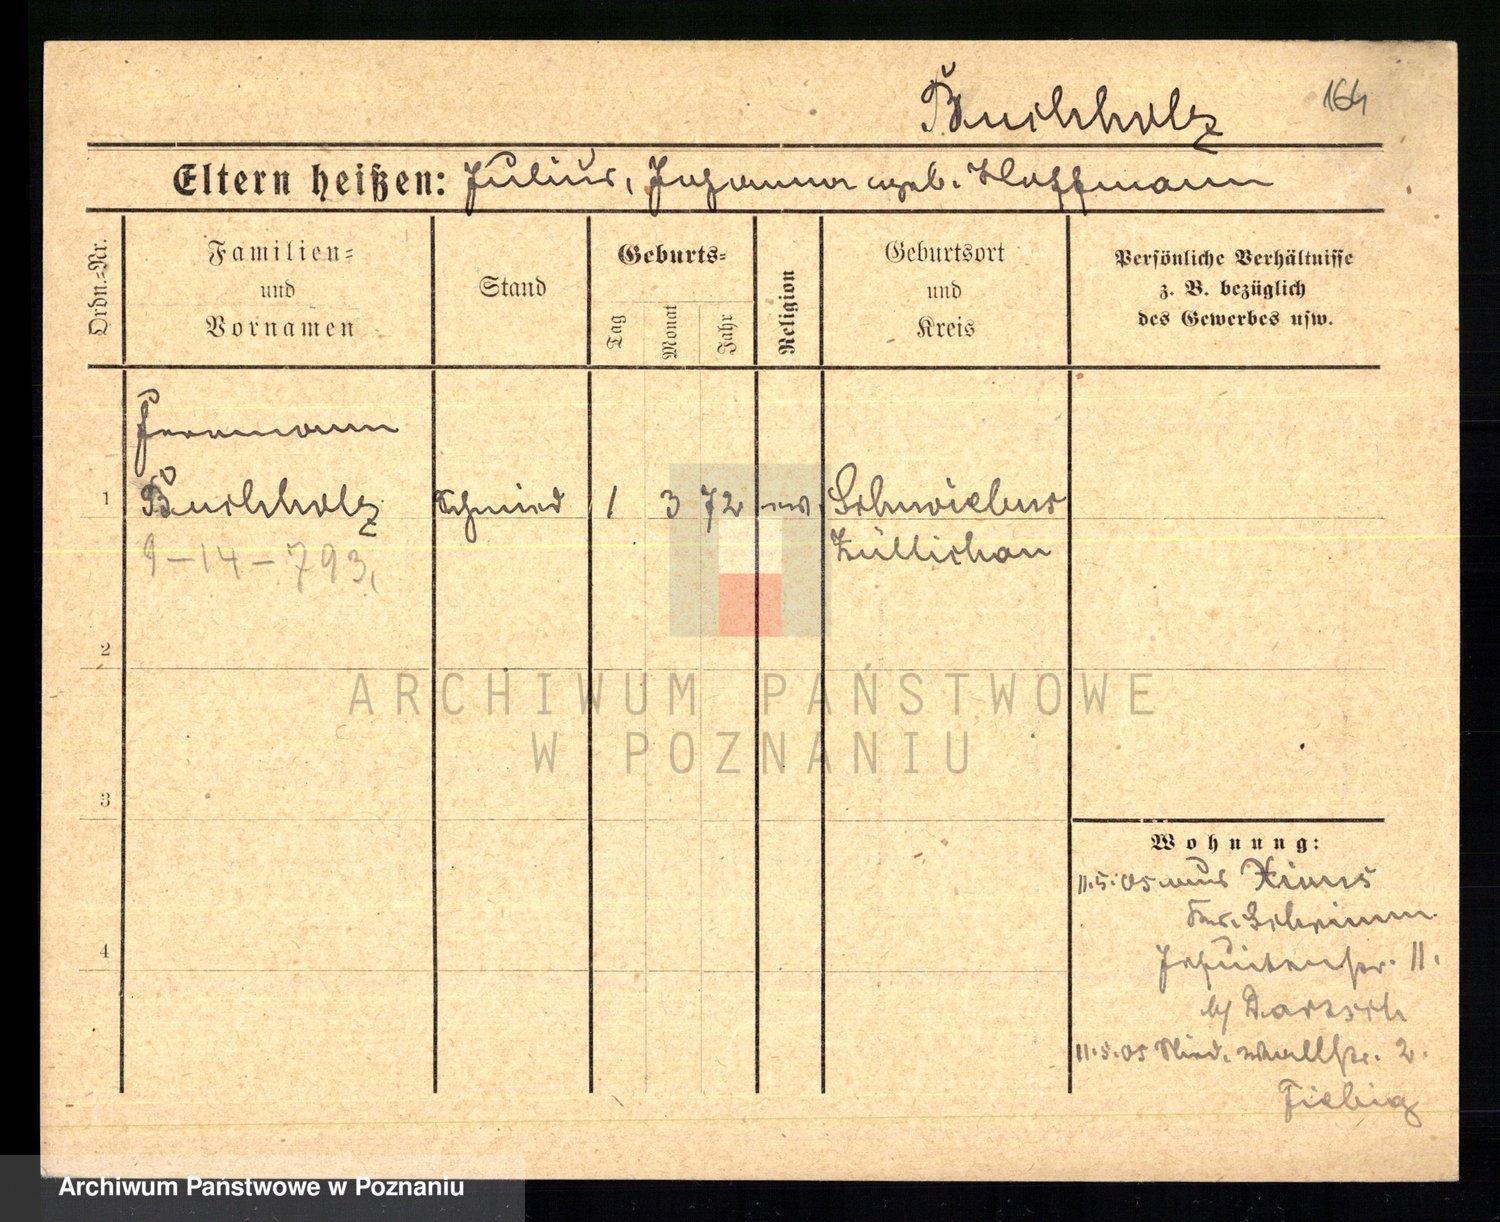 Buchholz
164
Eltern heißen: Julius, Johanna geb. Hoffmann
Ordn.-Nr.
Familien-
und
Vornamen
Stand
Geburts-
Tag
Monat
Jahr
Religion
Geburtsort
und
Kreis
Persönliche Verhältnisse
z. B. bezüglich
des Gewerbes usw.
Hermann
1 Buchholz Schmied 1 3 72 ev. Schwiebus
9-14-793, Züllichau
2
ARCHIWUM PAŃSTWOWE
W POZNANIU
3
Wohnung:
11.5.05 aus Xions
Krs. Schrimm
4
Jesuitenstr. 11.
b/ Bartsch
11.5.05 Nied. Wallstr. 2.
Fiebig
Archiwum Państwowe w Poznaniu